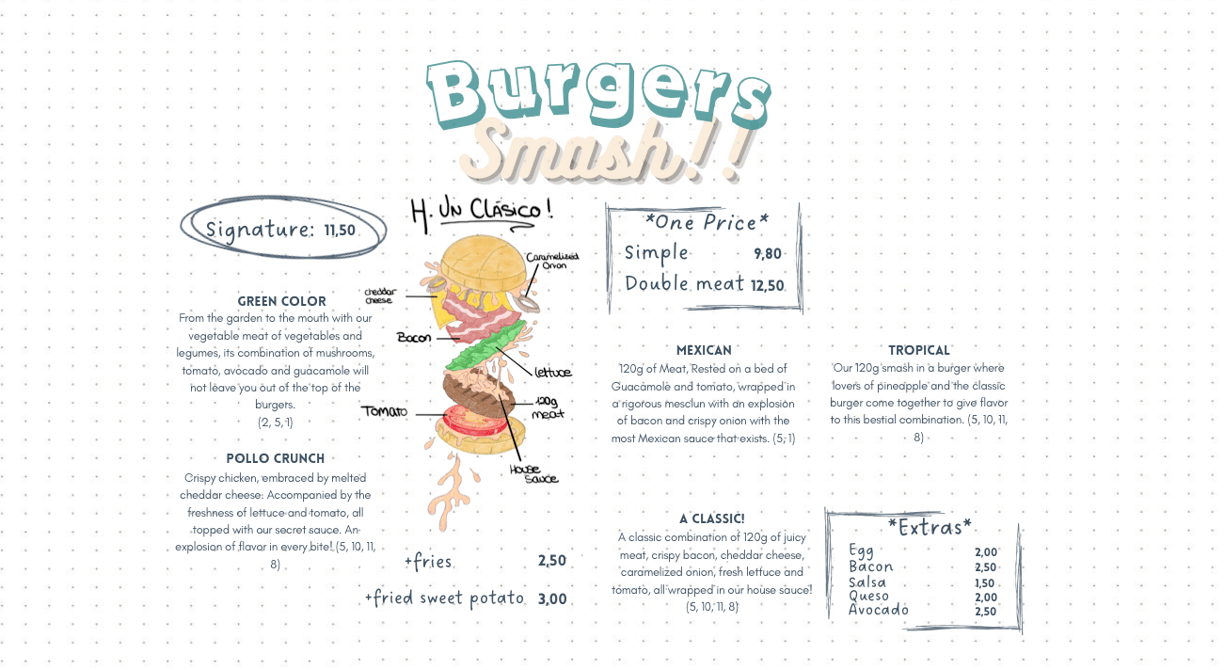 Burgers
Smash!!
Signature: 11,50
GREEN COLOR
From the garden to the mouth with our
vegetable meat of vegetables and
legumes, its combination of mushrooms,
tomato, avocado and guacamole will
not leave you out of the top of the
burgers.
(2, 5, 1)
POLLO CRUNCH
Crispy chicken, embraced by melted
cheddar cheese. Accompanied by the
freshness of lettuce and tomato, all
topped with our secret sauce. An
explosion of flavor in every bite! (5, 10, 11,
8)
H. UN CLÁSICO!
Caramelized
Onion
cheddar
cheese
Bacon
lettuce
120g
meat
Tomato
House
Sauce
+fries 2,50
+fried sweet potato 3,00
*One Price*
Simple 9,80
Double meat 12,50
MEXICAN
120g of Meat, Rested on a bed of
Guacamole and tomato, wrapped in
a rigorous mesclun with an explosion
of bacon and crispy onion with the
most Mexican sauce that exists. (5, 1)
TROPICAL
Our 120g smash in a burger where
lovers of pineapple and the classic
burger come together to give flavor
to this bestial combination. (5, 10, 11,
8)
A CLASSIC!
A classic combination of 120g of juicy
meat, crispy bacon, cheddar cheese,
caramelized onion, fresh lettuce and
tomato, all wrapped in our house sauce!
(5, 10, 11, 8)
*Extras*
Egg 2,00
Bacon 2,50
Salsa 1,50
Queso 2,00
Avocado 2,50